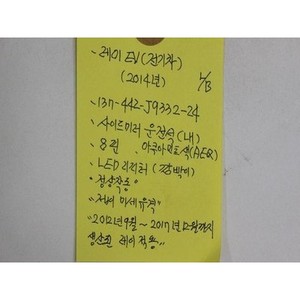 - 레이 EV (전기차)
(2014년) L/B
- 137-442-J9332-24
- 사이드미러 운전석 (내)
- 8핀 아쿠아민트색(AEQ)
- LED 리피터 (깜박이)
"정상작동"
"전체 미세 유격"
"2012년 9월 ~ 2017년 12월까지
생산된 레이 적용"